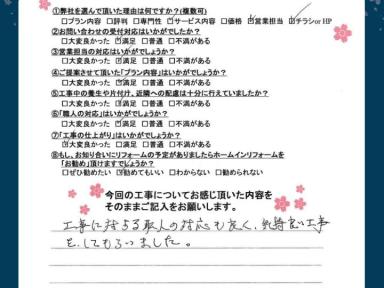 ①弊社を選んで頂いた理由は何ですか?(複数可)
□プラン内容 □評判 □専門性 ☑サービス内容 □価格 ☑営業担当 ☑チラシor HP
②お問い合わせの受付対応はいかがでしたか?
□大変良かった ☑満足 □普通 □不満がある
③営業担当の対応はいかがでしたか?
□大変良かった ☑満足 □普通 □不満がある
④ご提案させて頂いた「プラン内容」はいかがでしょうか?
□大変良かった ☑満足 □普通 □不満がある
⑤工事中の養生や片付け、近隣への配慮は十分に行えていましたか?
□大変良かった ☑満足 □普通 □不満がある
⑥「職人の対応」はいかがでしょうか?
□大変良かった ☑満足 □普通 □不満がある
⑦「工事の仕上がり」はいかがでしょうか?
☑大変良かった □満足 □普通 □不満がある
⑧もし、お知り合いにリフォームの予定がありましたらホームインリフォームを
「お勧め」頂けますでしょうか?
□ぜひ勧めたい ☑勧めてもいい □わからない □勧められない
今回の工事についてお感じ頂いた内容を
そのままご記入をお願いします。
工事に対する職人の対応も良く、気持良い工事
を、してもらいました。